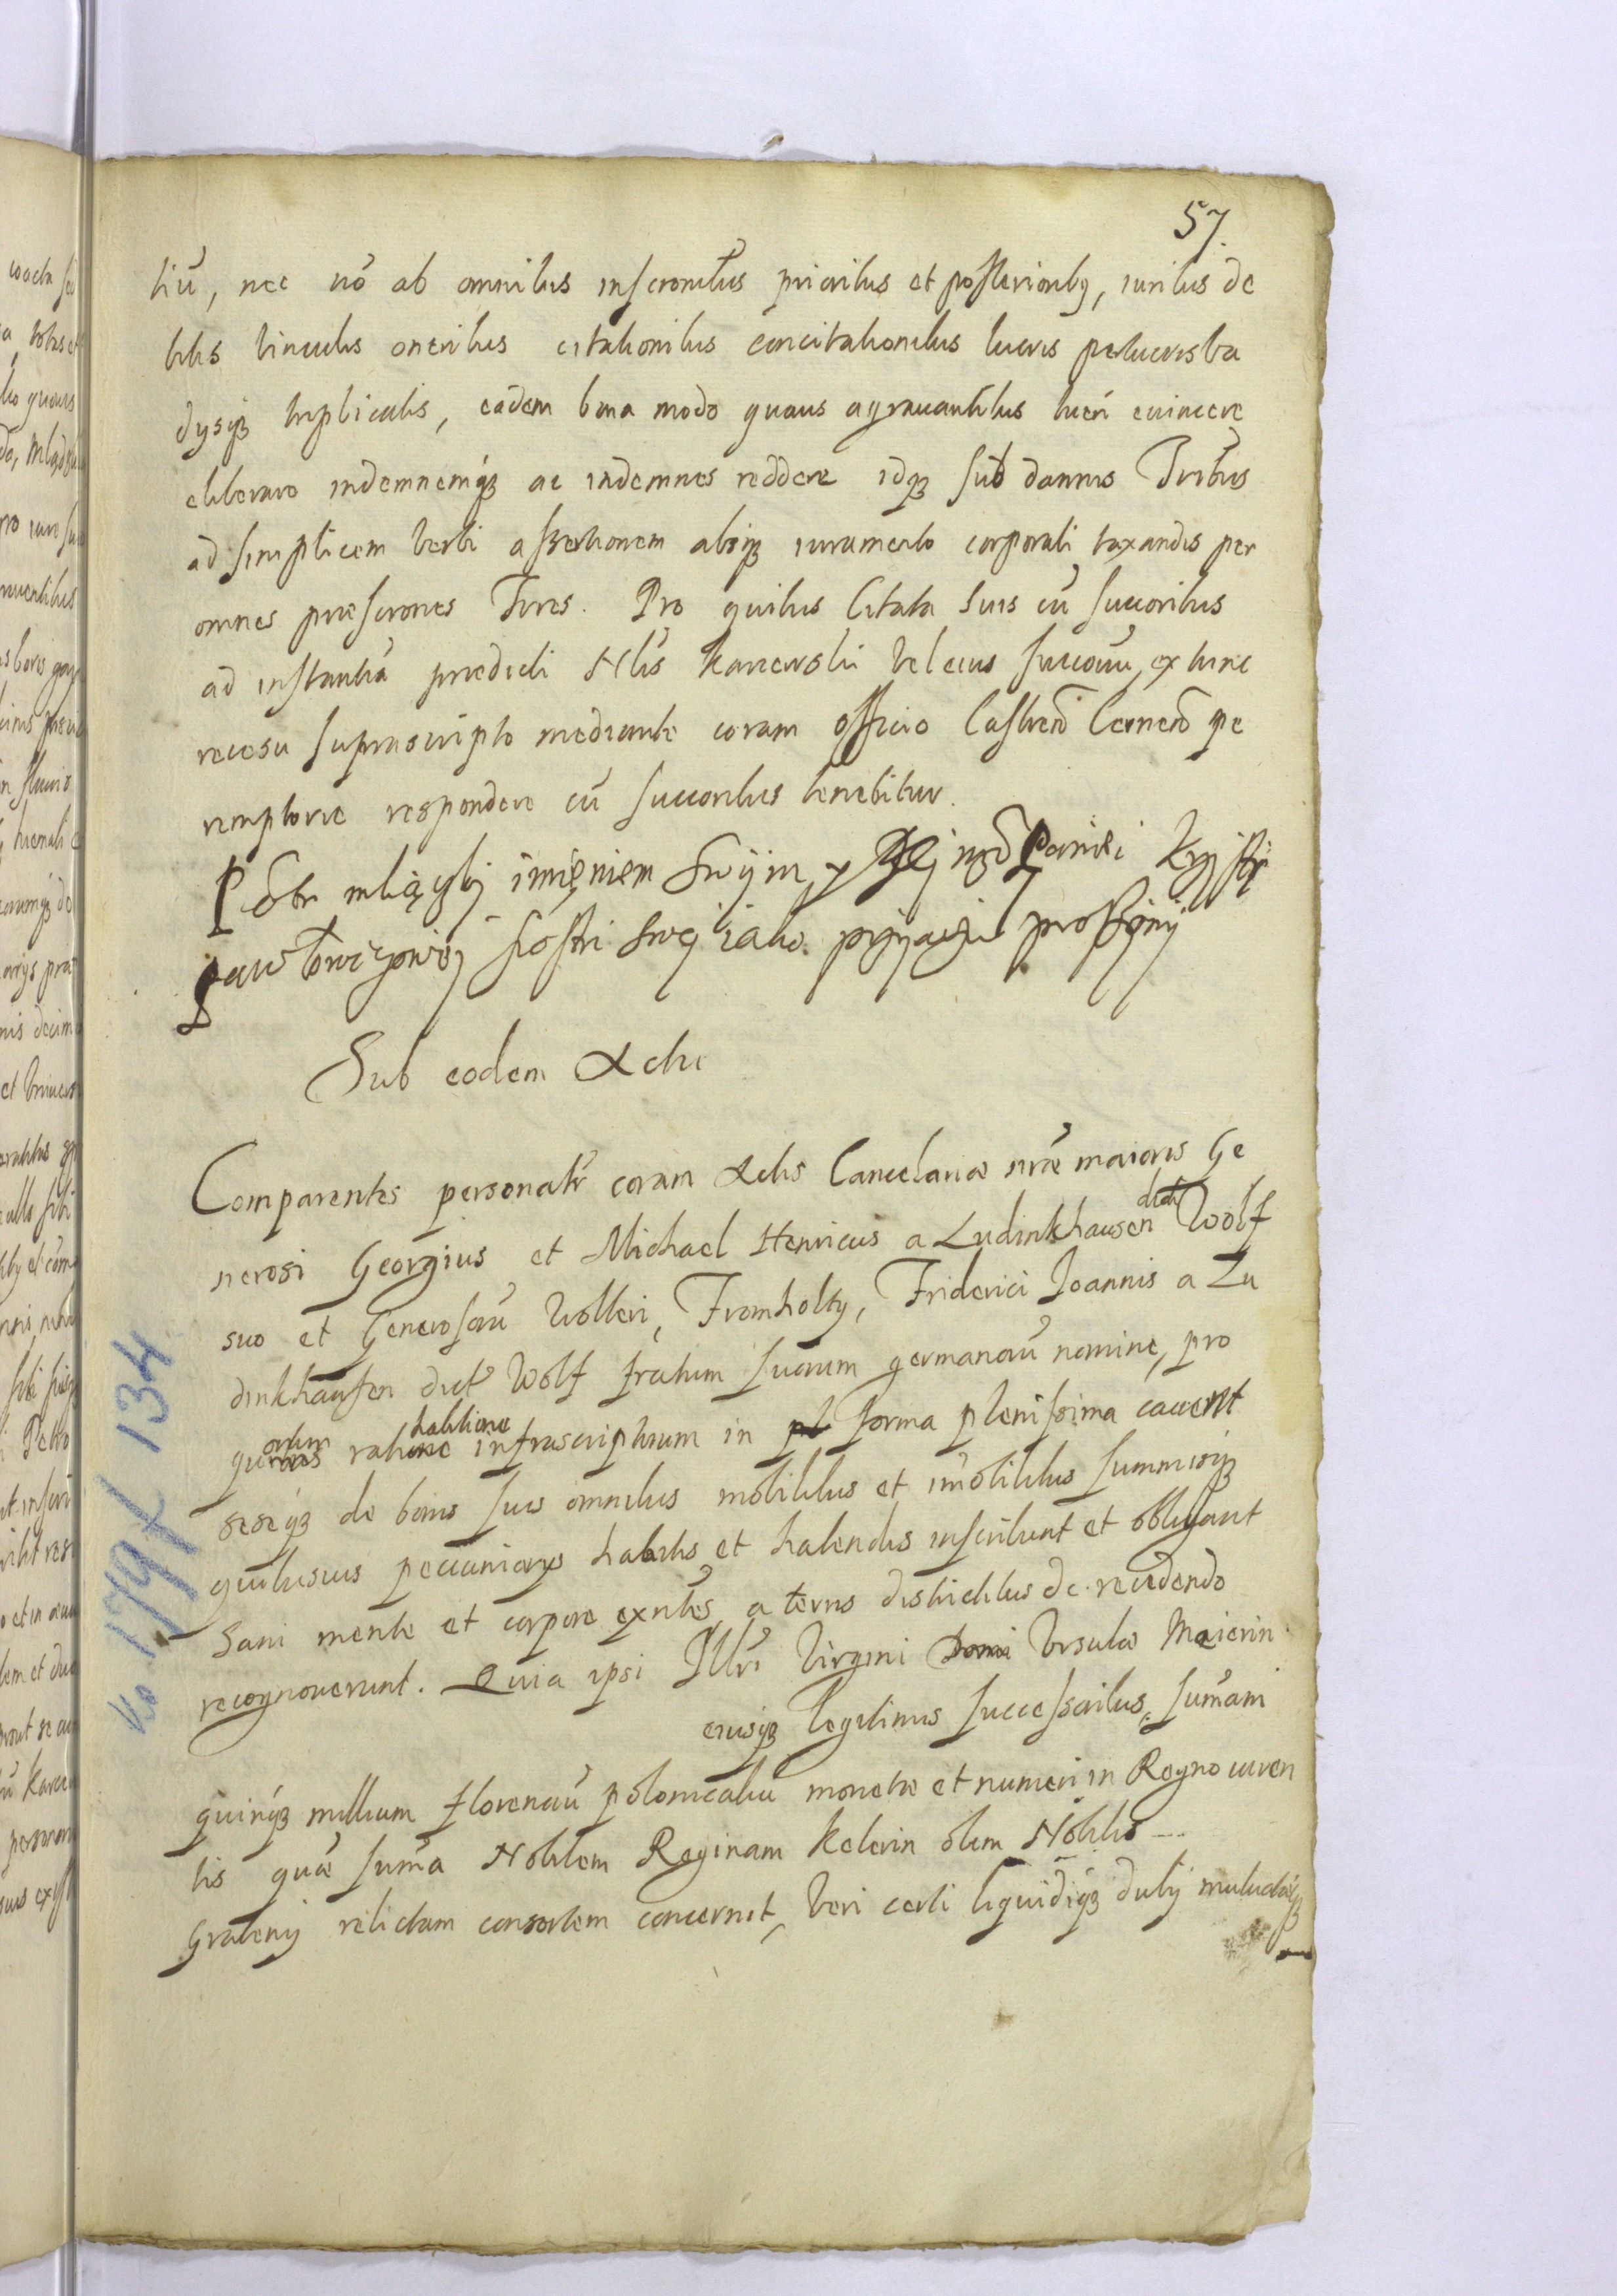 57.
tiū, nec nō ab omnibus inscronibus prioribus et posterioribq, iuribus de
bitis vinculis oneribus citationibus concitationibus lucris perlucris va
dysqz triplicatis, eadem bona modo quovis agravantibus tueri evincere
eliberare indemnemqz ac indemnes reddere idqz sub damnis Tribus
ad simplicem verbi assertionem absqz iuramento corporali taxandis per
omnes prescrones Tūres. Pro quibus Citata suis cū succoribus
ad instantiā predicti Nlis Karczewski vel eius succorum ex tunc
recessu suprascripto mediante coram officio Castren Cernen pe
remptorie respondere cū succoribus tenebitur.
Piotr imięniem swÿim y Jej mſc Paniei
siostri swej iako przyaciel proszonÿ
Sub eodem Actu
Comparentes personalr coram Actis Cancelariæ nræ maioris Ge
nerosi Georgius et Michael Henricus a Ludinkhausen dicti Wolf
suo et Generosorū Wolteri, Fromholtz, Friderici Joannis a Lu
dinkhausen dict Wolf fratrum suorum germanorū nomine, pro
quorum ratihabitione infrascriptorum in forma plenissima cavent
seseqz de bonis suis omnibus mobilibus et imobilibus summisqz
quibusvis pecuniarys habitis et habendis inscribunt et obligant
Sani mente et corpore exntes a terris districtibus de recedendo
recognoverunt. Quia ipsi Illri Virgini Ursulæ Meierin
eiusqz legitimis successoribus, sumam
quinqz millium florenorū polonicaliū monetæ et numeri in Regno curren
tis quæ suma Nobilem Reginam Kelerin olim Nobilis ---
Grabenij relictam consortem concernit, Veri certi liquidiqz dubij mutuatiqz
No 179/ 134